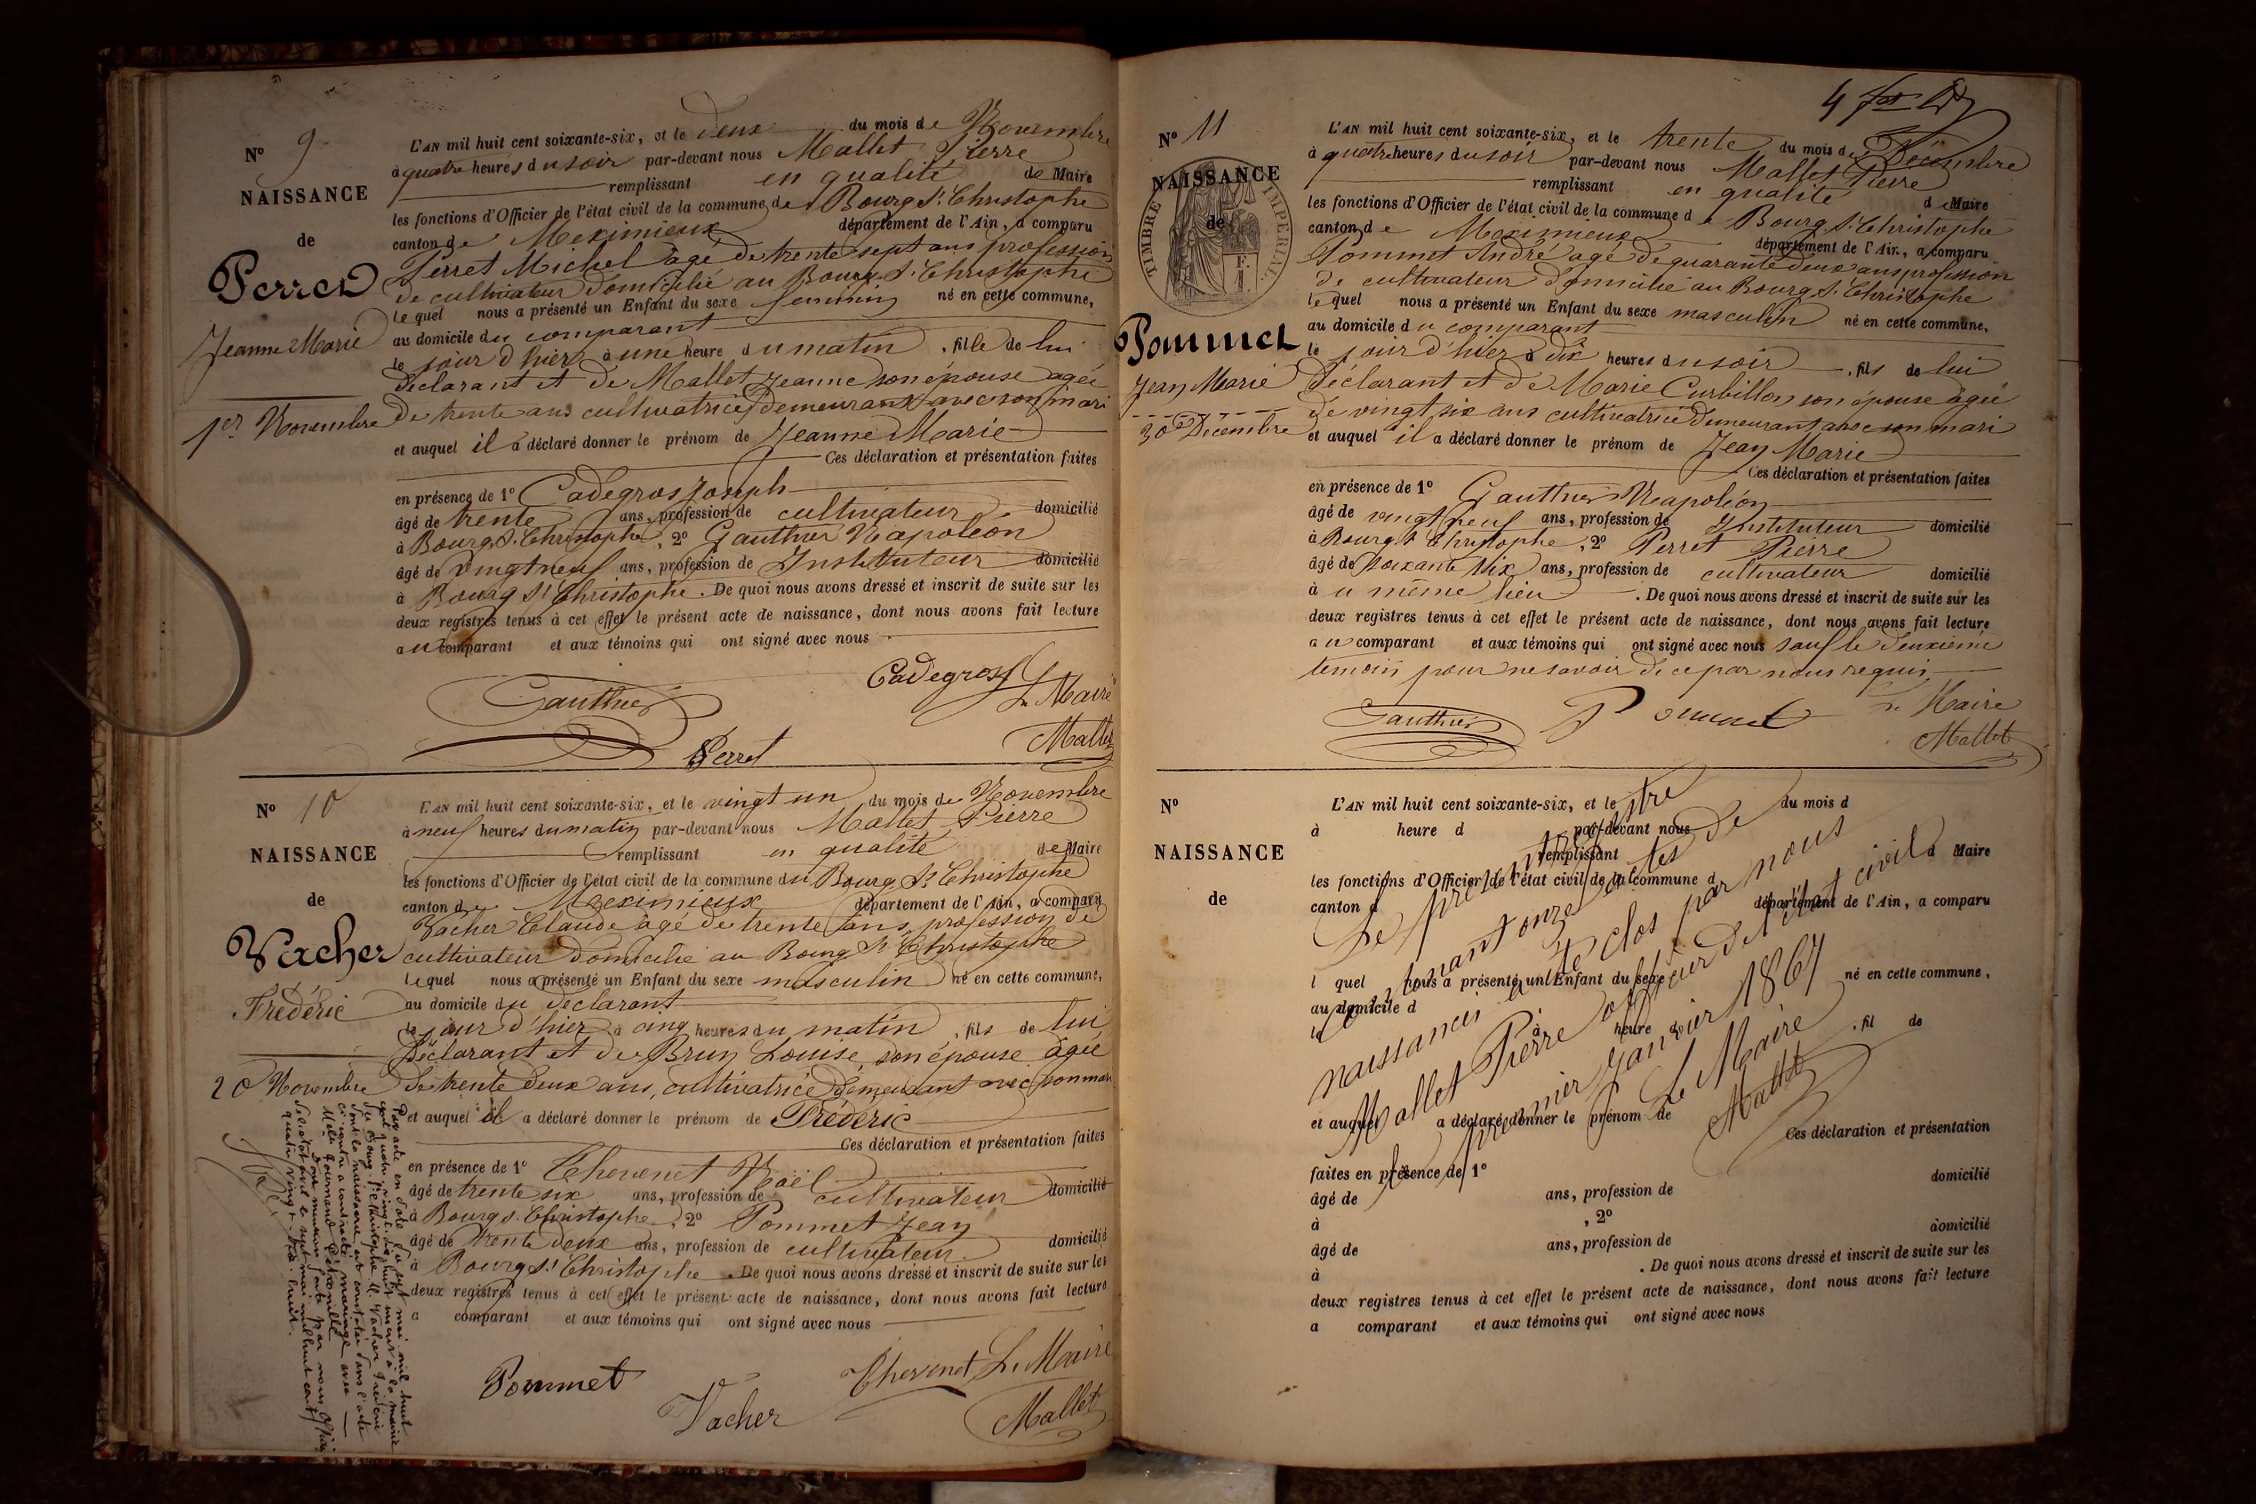 Nº 9
NAISSANCE
de
Perret
Jeanne Marie
1er Novembre
L'AN mil huit cent soixante-six, et le deux du mois de Novembre
à quatre heures du soir par-devant nous Mallet Pierre
remplissant en qualité de Maire
les fonctions d'Officier de l'état civil de la commune de Bourg St Christophe
canton de Meximieux département de l'Ain, a comparu
Perret Michel âgé de trente sept ans profession
de cultivateur domicilié au Bourg St Christophe
lequel nous a présenté un Enfant du sexe feminin né en cette commune,
au domicile du comparant
le jour d'hier à une heure du matin, fille de lui
déclarant et de Mallet Jeanne son épouse agée
de trente ans cultivatrice demeurant avec son mari
et auquel il a déclaré donner le prénom de Jeanne Marie
Ces déclaration et présentation faites
en présence de 1º Cadegros Joseph
âgé de trente ans, profession de cultivateur domicilié
à Bourg St Christophe, 2º Gauthier Napoléon
âgé de vingt neuf ans, profession de Instituteur domicilié
à Bourg St Christophe. De quoi nous avons dressé et inscrit de suite sur les
deux registres tenus à cet effet le présent acte de naissance, dont nous avons fait lecture
au comparant et aux témoins qui ont signé avec nous
Cadegros
Gauthier
Le Maire
Perret
Mallet
Nº 10
NAISSANCE
de
Vacher
Frédéric
20 Novembre
L'AN mil huit cent soixante-six, et le vingt un du mois de Novembre
à neuf heures du matin par-devant nous Mallet Pierre
remplissant en qualité de Maire
les fonctions d'Officier de l'état civil de la commune du Bourg St Christophe
canton de Meximieux département de l'Ain, a comparu
Vacher Claude âgé de trente ans, profession de
cultivateur domicilié au Bourg St Christophe
lequel nous a présenté un Enfant du sexe masculin né en cette commune,
au domicile du déclarant
le jour d'hier à cinq heures du matin, fils de lui
déclarant et de Brun Louise son épouse âgée
de trente deux ans, cultivatrice demeurant avec son mari
et auquel il a déclaré donner le prénom de Frédéric
Ces déclaration et présentation faites
en présence de 1º Thevenet Noël
âgé de trente six ans, profession de cultivateur domicilié
à Bourg St Christophe, 2º Pommet Jean
âgé de trente deux ans, profession de cultivateur domicilié
à Bourg St Christophe. De quoi nous avons dressé et inscrit de suite sur les
deux registres tenus à cet effet le présent acte de naissance, dont nous avons fait lecture
a comparant et aux témoins qui ont signé avec nous
Pommet
Vacher
Thevenet
Le Maire
Mallet
Par acte en date du sept mai mil huit
cent quatre vingt dix huit inscrit à la mairie
du Bourg St Christophe M. Vacher Frédéric
dont la naissance est constatée dans l'acte
ci contre a contracté mariage avec
Melle
dont mention faite par nous officier
de l'état civil le sept mai mil huit cent
quatre vingt dix huit.
4
Nº 11
NAISSANCE
de
TIMBRE IMPERIAL
Pommet
Jean Marie
30 Décembre
L'AN mil huit cent soixante-six, et le trente du mois de Décembre
à quatre heures du soir par-devant nous Mallet Pierre
remplissant en qualité de Maire
les fonctions d'Officier de l'état civil de la commune de Bourg St Christophe
canton de Meximieux département de l'Ain, a comparu
Pommet André agé de quarante deux ans profession
de cultivateur domicilié au Bourg St Christophe
lequel nous a présenté un Enfant du sexe masculin né en cette commune,
au domicile du comparant
le jour d'hier à dix heures du soir, fils de lui
déclarant et de Marie Curbillon son épouse âgée
de vingt six ans cultivatrice demeurant avec son mari
et auquel il a déclaré donner le prénom de Jean Marie
Ces déclaration et présentation faites
en présence de 1º Gauthier Napoléon
âgé de vingt neuf ans, profession de Instituteur domicilié
à Bourg St Christophe, 2º Perret Pierre
âgé de soixante six ans, profession de cultivateur domicilié
à u même lieu. De quoi nous avons dressé et inscrit de suite sur les
deux registres tenus à cet effet le présent acte de naissance, dont nous avons fait lecture
au comparant et aux témoins qui ont signé avec nous sauf le deuxième
temoin pour ne savoir de ce par nous requis
Gauthier
Pommet
Le Maire
Mallet
Nº
NAISSANCE
de
L'AN mil huit cent soixante-six, et le du mois d
à heure d par-devant nous
remplissant d Maire
les fonctions d'Officier de l'état civil de la commune d
canton d département de l'Ain, a comparu
l quel nous a présenté un Enfant du sexe né en cette commune,
au domicile d
le à heure d, fil de
et auquel a déclaré donner le prénom de
Ces déclaration et présentation
faites en présence de 1º domicilié
âgé de ans, profession de
à , 2º domicilié
âgé de ans, profession de
à . De quoi nous avons dressé et inscrit de suite sur les
deux registres tenus à cet effet le présent acte de naissance, dont nous avons fait lecture
a comparant et aux témoins qui ont signé avec nous
Le présent registre
contenant onze actes de
naissances a été clos par nous
Mallet Pierre officier de l'état civil
le premier janvier 1867
Le Maire
Mallet